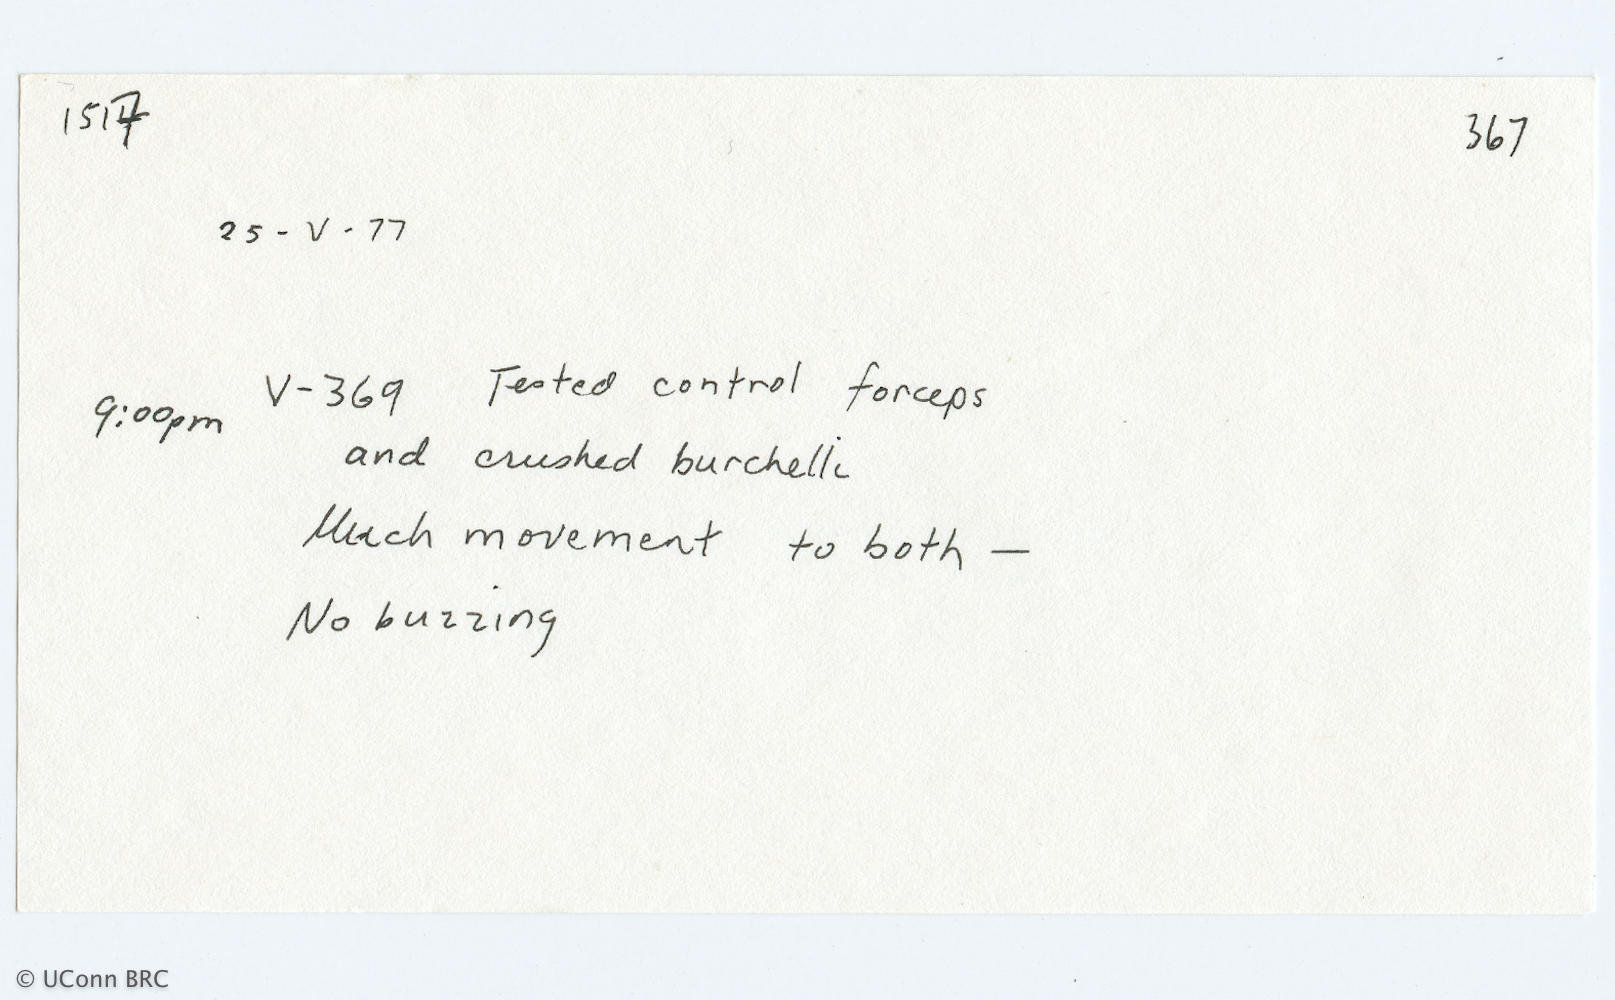 1517
367
25-V-77
9:00pm V-369 Tested control forceps
and crushed burchelli
Much movement to both —
No buzzing
© UConn BRC